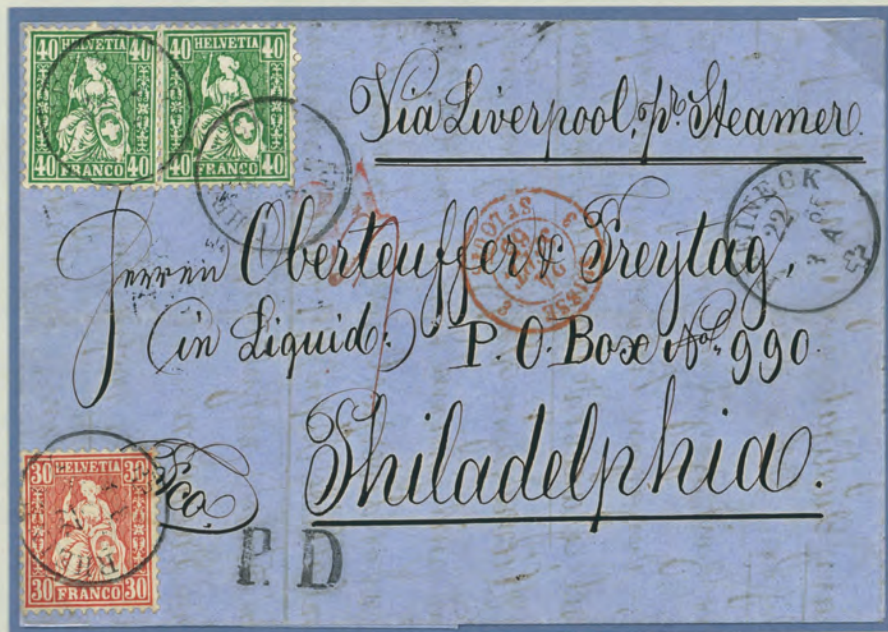 40 HELVETIA 40
40 FRANCO 40
40 HELVETIA 40
40 FRANCO 40
Via Liverpool, pr. Steamer.
Herren Oberteuffer & Freytag,
(in Liquid:) P. O. Box No. 990.
Philadelphia.
fco.
30 HELVETIA 30
30 FRANCO 30
P. D
SUISSE
22